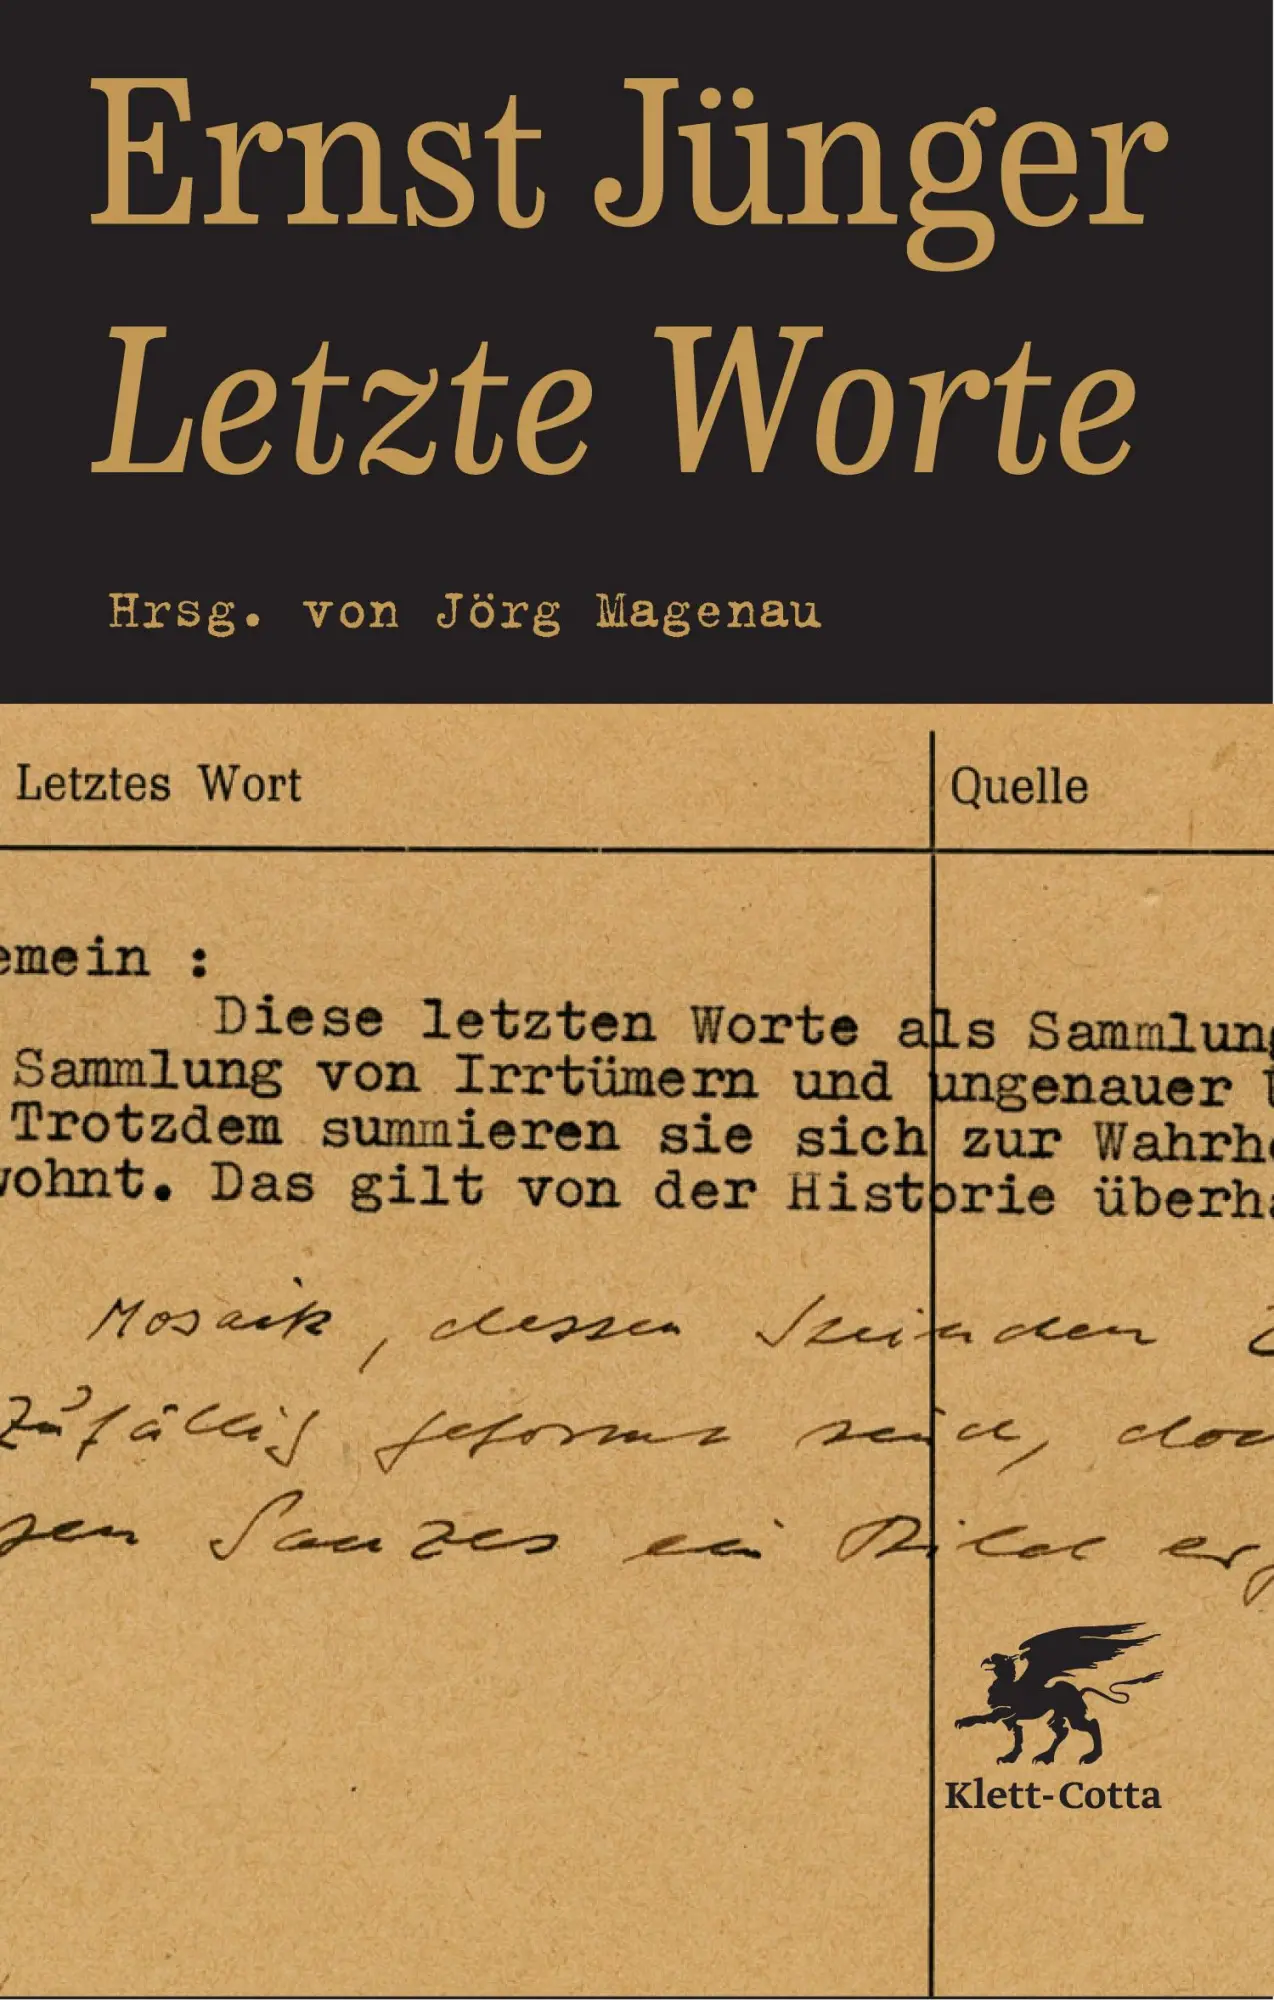 Ernst Jünger
Letzte Worte
Hrsg. von Jörg Magenau
Letztes Wort
Quelle
emein :
Diese letzten Worte als Sammlung
Sammlung von Irrtümern und ungenauer
Trotzdem summieren sie sich zur Wahrhe
wohnt. Das gilt von der Historie überha
Mosaik, dessen
Zufällig geformt sind, doc
Ganzes ein Bild erg
Klett-Cotta